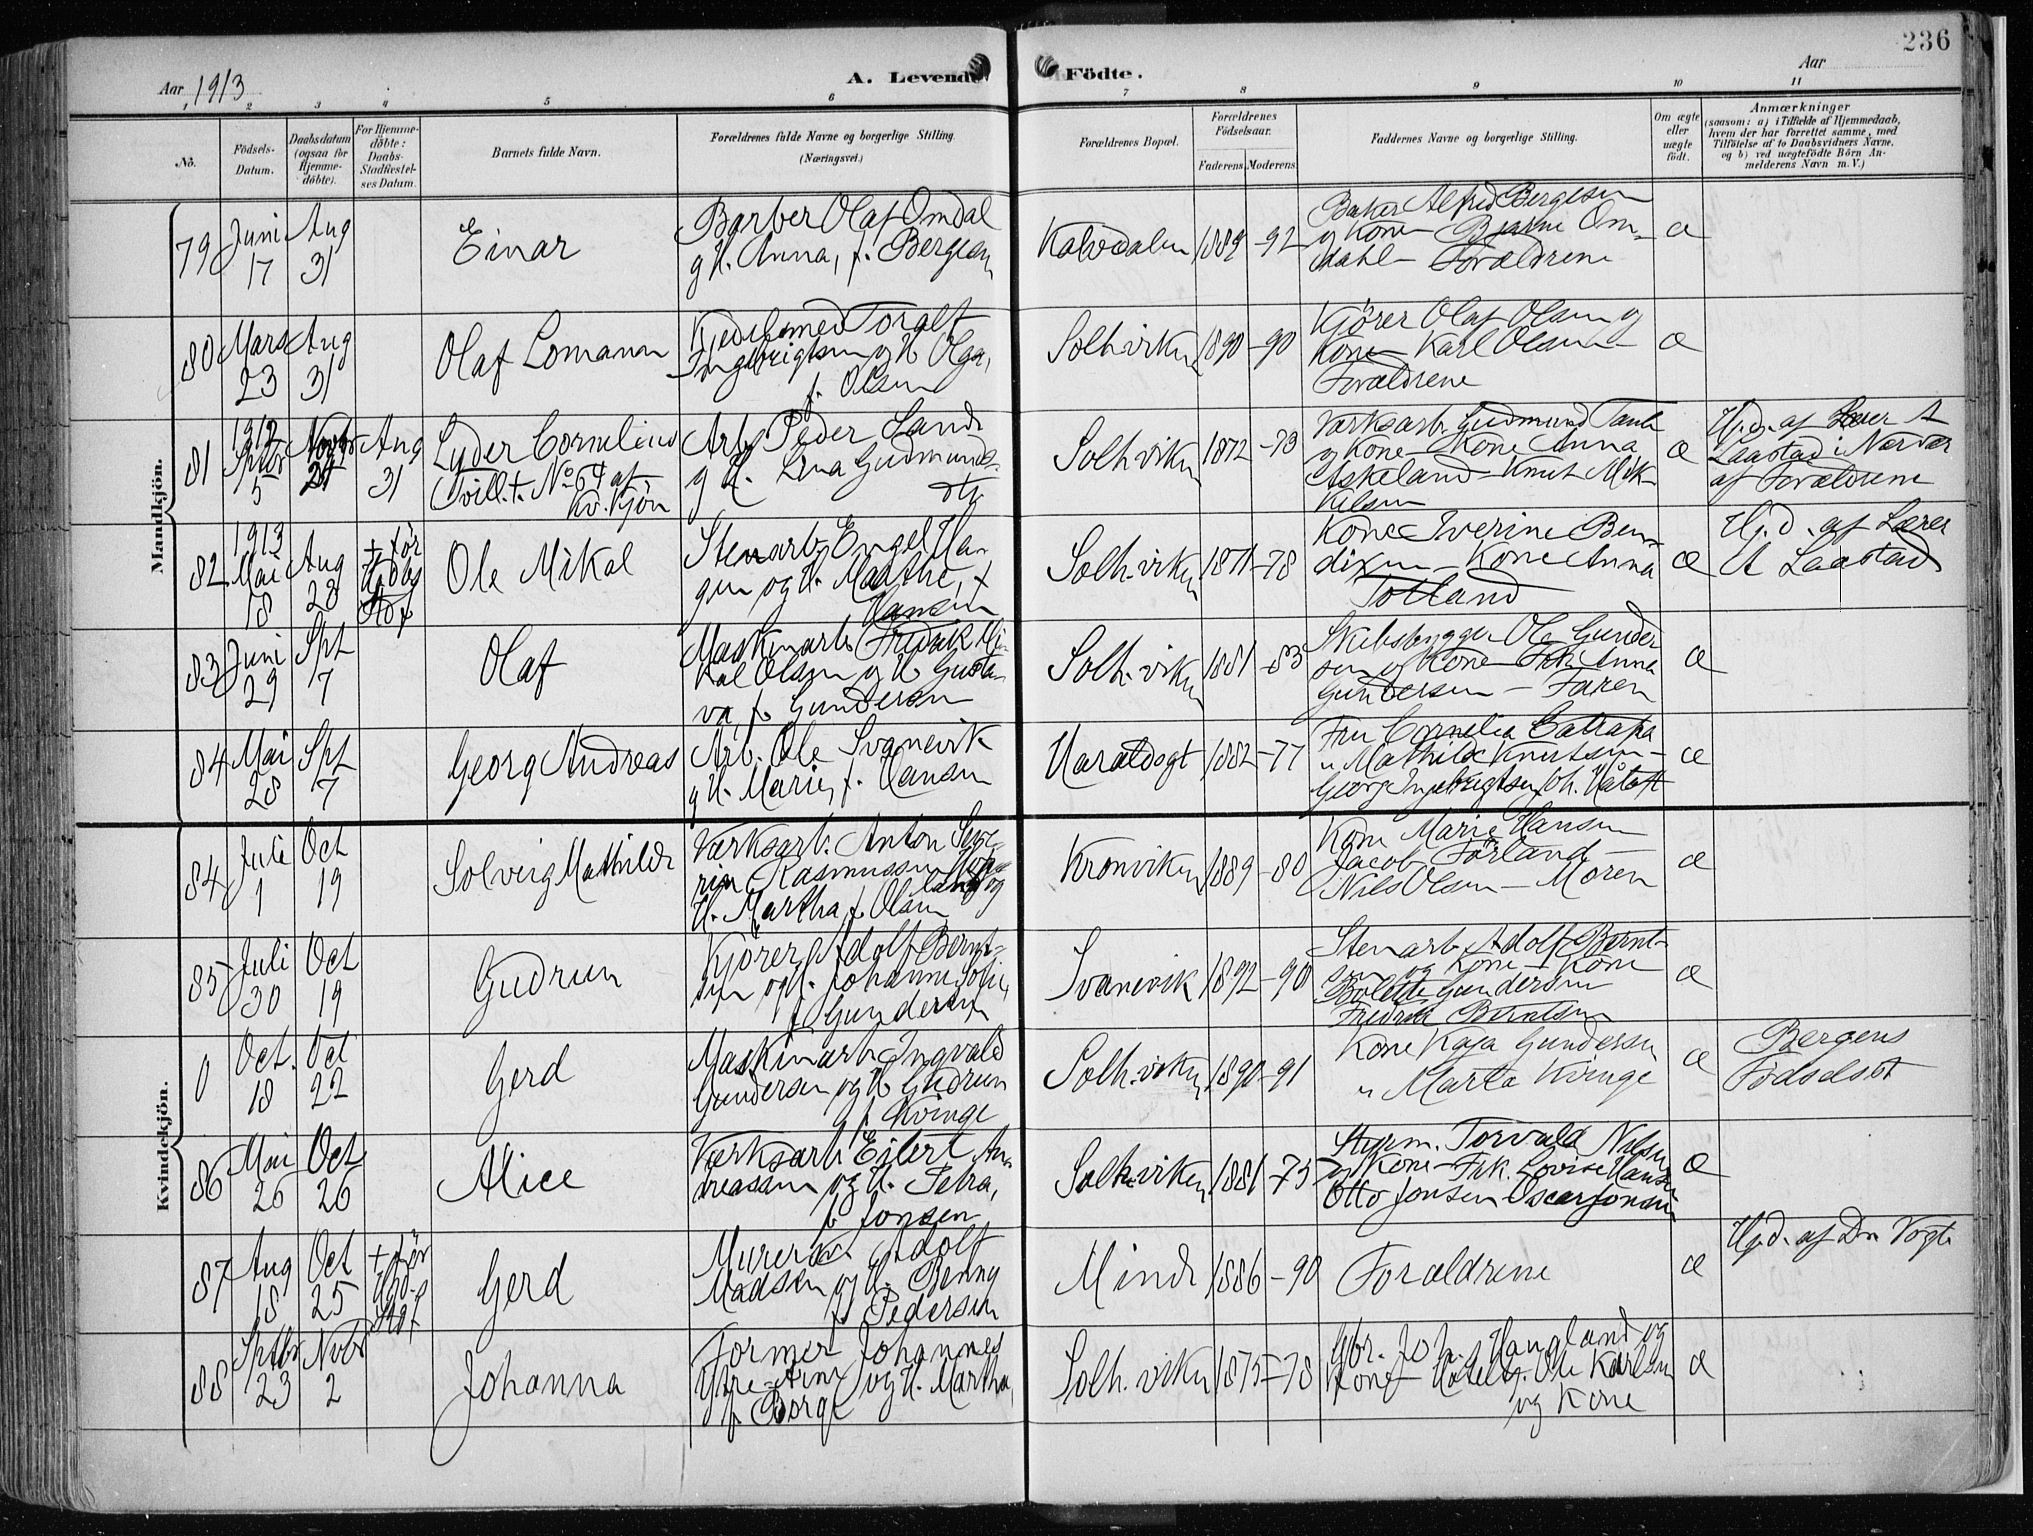 236
Aar 1913
A. Levende Födte.
Aar
1 2 3 4 5 6 7 8 9 10 11
No.
Födsels-Datum.
Daabsdatum (ogsaa for Hjemme-döbte).
For Hjemme-döbte: Daabs-Stadfæstel-ses Datum.
Barnets fulde Navn.
Forældrenes fulde Navne og borgerlige Stilling.
(Næringsvei.)
Forældrenes Bopæl.
Forældrenes Födselsaar.
Faderens Moderens
Faddernes Navne og borgerlige Stilling.
Om ægte eller uægte födt.
Anmærkninger
(saasom: a) i Tilfælde af Hjemmedaab, hvem der har forrettet samme, med Tilföielse af to Daabsvidners Navne, og b) ved uægtefödte Börn Anmelderens Navn m. V.)
Mandkjön.
79 Juni 17 Aug 31 Einar
Barber Olaf Omdal
og H. Anna, f. Bergesen
Kalvedalen 1889 -92
Baker Alfred Bergesen
og Kone - Bjarne Om-
dahl - Forældrene
æ
80 Mars 23 Aug 31 Olaf Lomann
Kjedelsmed Toralf
Ingebrigtsen og H. Olga,
f. Olsen
Solh.viken 1890 -90
Kjörer Olaf Olsen og
Kone - Karl Olsen -
Forældrene
æ
81 1912 Sptbr 5 Novbr Aug 31
Lyder Cornelius
Tvill. t. No 64 af
Kv. Kjön
Arb. Peder Lande
og H. Lena Gudmunds-
dtr
Solh.viken 1872 -73
Værksarb. Gudmund
og Kone - Kone Anna
Askeland - Knut Mik-
kelsen
æ
Hj.d. af Lærer A
Laastad i Nærvær
af Forældrene
82 1913 Mai 18 Aug 28 + för
Ole Mikal
Stenarb. Engel Ha-
gen og H. Marthe, f.
Hansen
Solh.viken 1871 -78
Kone Iverine Ben-
dixen - Kone Anna
Totland
æ
Hj.d. af Lærer
A Laastad
83 Juni 29 Spt 7 Olaf
Maskinarb. Fredrik Mi-
kal Olsen og H. Gusta-
va, f. Gundersen
Solh.viken 1881 -83
Skibsbygger Ole Gunder
sen og Kone - Frk. Anna
Gundersen - Faren
æ
84 Mai 28 Spt 7 Georg Andreas
Arb. Ole Svanevik
og H. Marie, f. Hansen
Haraldsgt 1882 -77
Fru Cornelia
" Mathilde Knutsen -
Georg Ingebrigtsen, Joh.
æ
Kvindekjön.
84 Juli 1 Oct 19 Solveig Mathilde
Værksarb. Anton Seve-
rin Rasmussen og
H. Martha f. Olsen
Kronviken 1889 -80
Kone Marie Hansen
Jacob Förland -
Nils Olsen - Moren
æ
85 Juli 30 Oct 19 Gudrun
Kjörer Adolf Bernt-
sen og H. Johanne Sofie,
f. Gundersen
Svanevik 1892 -90
Stenarb. Adolf Bernt-
sen og Kone - Kone
Bolette Gundersen
Fredrik Berntsen
æ
0 Oct. 18 Oct 22 Gerd
Maskinarb. Ingvald
Gundersen og H. Gudrun
f. Kvinge
Solh.viken 1890 -91
Kone Kaja Gundersen
" Marta Kvinge
æ
Bergens
Födselsst
86 Mai 26 Oct 26 Alice
Værksarb. Eilert An-
dreassen og H. Petra,
f. Jonsen
Solh.viken 1881 -75
Styrm. Torvald Nilsen
og Kone - Frk. Lovise Hansen
Otto Jonsen Oscar Jonsen
æ
87 Aug 18 Oct 25 + för
Gerd
Murer Adolf
Madsen og H. Benny
f. Pedersen
Minde 1886 -90
Forældrene
æ
Hj.d. af Dr. Vogt
88 Sptbr 23 Novbr 2 Johanna
Former Johannes
Ytre-Arne og H. Martha,
f. Borge
Solh.viken 1875 -78
Gbr. Joh. Haugland og
Kone - Ole Karlsen
og Kone
æ